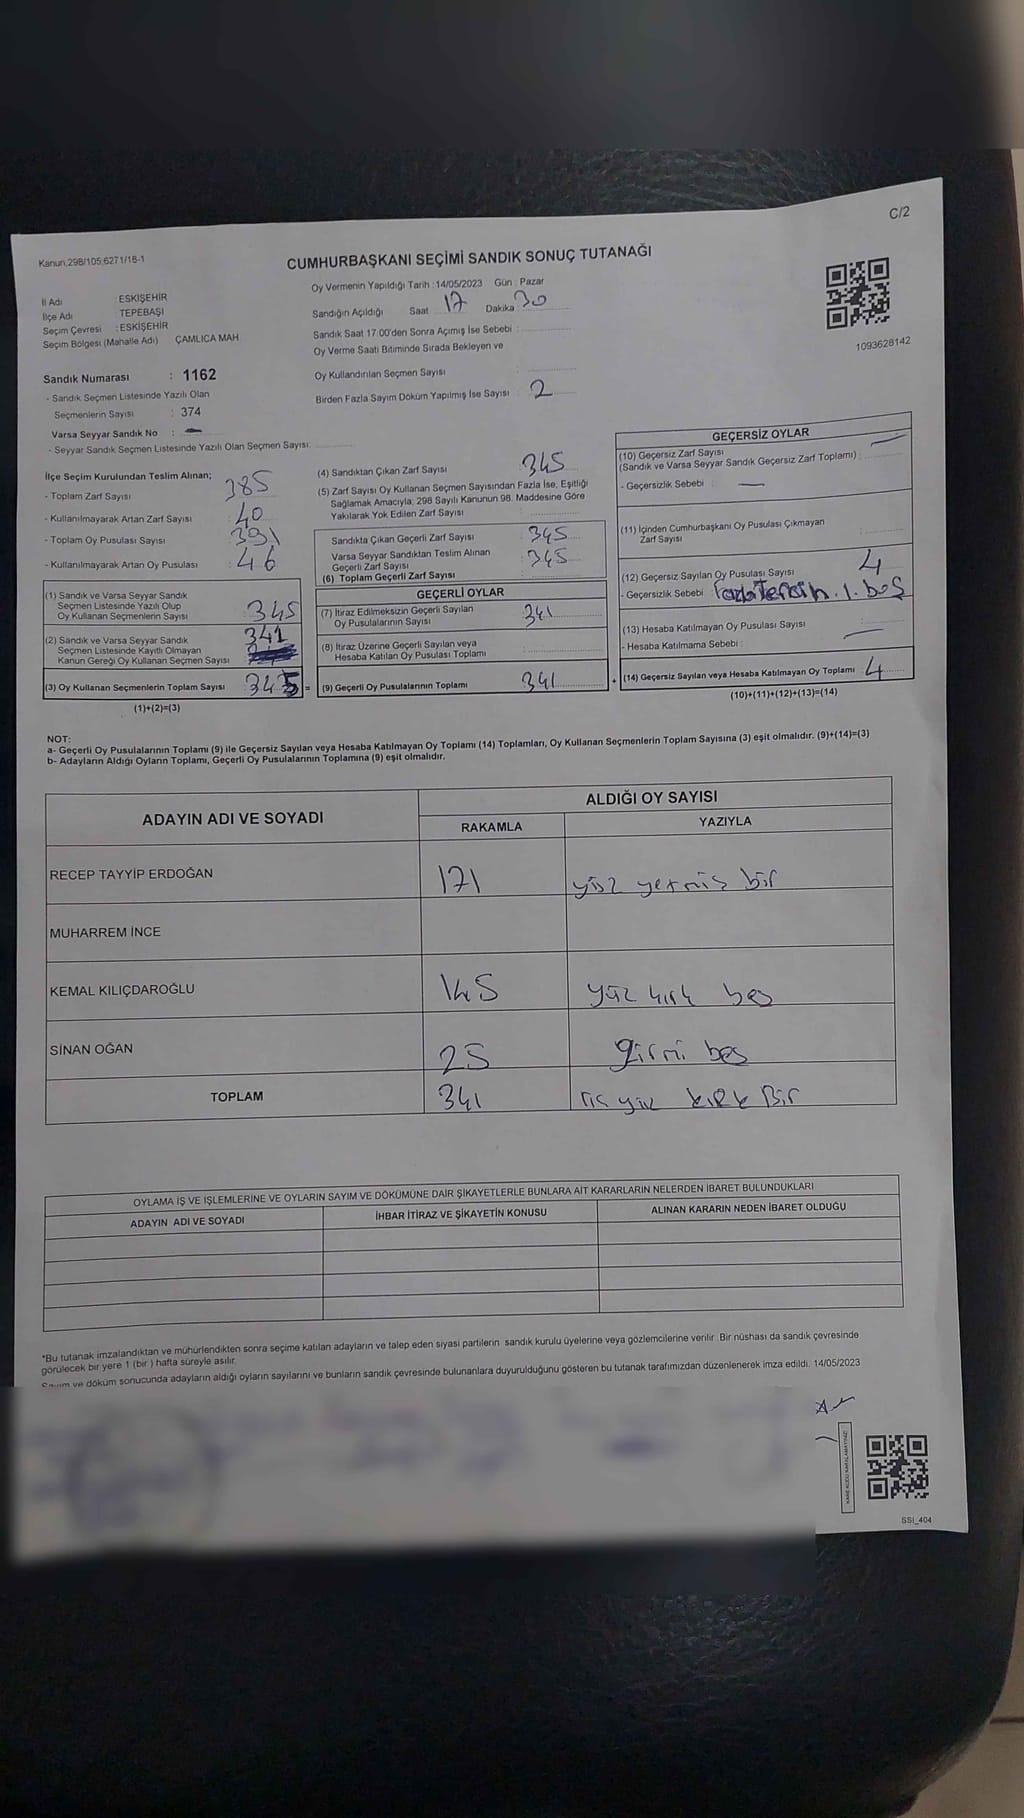 C/2
Kanun,298/105,6271/18-1
CUMHURBAŞKANI SEÇİMİ SANDIK SONUÇ TUTANAĞI
İl Adı : ESKİŞEHİR
İlçe Adı TEPEBAŞI
Seçim Çevresi : ESKİŞEHİR
Seçim Bölgesi (Mahalle Adı) ÇAMLICA MAH
Oy Vermenin Yapıldığı Tarih :14/05/2023 Gün : Pazar
Sandığın Açıldığı Saat 17 Dakika 30
Sandık Saat 17:00'den Sonra Açımış İse Sebebi :
Oy Verme Saati Bitiminde Sırada Bekleyen ve
Oy Kullandırılan Seçmen Sayısı :
Birden Fazla Sayım Döküm Yapılmış İse Sayısı : 2
1093628142
Sandık Numarası : 1162
- Sandık Seçmen Listesinde Yazılı Olan
Seçmenlerin Sayısı : 374
Varsa Seyyar Sandık No : —
- Seyyar Sandık Seçmen Listesinde Yazılı Olan Seçmen Sayısı:
İlçe Seçim Kurulundan Teslim Alınan;
- Toplam Zarf Sayısı : 385
- Kullanılmayarak Artan Zarf Sayısı : 40
- Toplam Oy Pusulası Sayısı : 391
- Kullanılmayarak Artan Oy Pusulası : 46
(1) Sandık ve Varsa Seyyar Sandık
Seçmen Listesinde Yazılı Olup
Oy Kullanan Seçmenlerin Sayısı : 345
(2) Sandık ve Varsa Seyyar Sandık
Seçmen Listesinde Kayıtlı Olmayan
Kanun Gereği Oy Kullanan Seçmen Sayısı 341
(3) Oy Kullanan Seçmenlerin Toplam Sayısı : 345 =
(1)+(2)=(3)
(4) Sandıktan Çıkan Zarf Sayısı : 345
(5) Zarf Sayısı Oy Kullanan Seçmen Sayısından Fazla İse, Eşitliği
Sağlamak Amacıyla, 298 Sayılı Kanunun 98. Maddesine Göre
Yakılarak Yok Edilen Zarf Sayısı :
Sandıkta Çıkan Geçerli Zarf Sayısı : 345
Varsa Seyyar Sandıktan Teslim Alınan
Geçerli Zarf Sayısı : 345
(6) Toplam Geçerli Zarf Sayısı :
GEÇERLİ OYLAR
(7) İtiraz Edilmeksizin Geçerli Sayılan
Oy Pusulalarının Sayısı : 341
(8) İtiraz Üzerine Geçerli Sayılan veya
Hesaba Katılan Oy Pusulası Toplamı :
(9) Geçerli Oy Pusulalarının Toplamı : 341 +
GEÇERSİZ OYLAR
(10) Geçersiz Zarf Sayısı —
(Sandık ve Varsa Seyyar Sandık Geçersiz Zarf Toplamı) :
- Geçersizlik Sebebi : —
(11) İçinden Cumhurbaşkanı Oy Pusulası Çıkmayan
Zarf Sayısı :
(12) Geçersiz Sayılan Oy Pusulası Sayısı : 4
- Geçersizlik Sebebi : 1. boş
(13) Hesaba Katılmayan Oy Pusulası Sayısı : —
- Hesaba Katılmama Sebebi :
(14) Geçersiz Sayılan veya Hesaba Katılmayan Oy Toplamı : 4
(10)+(11)+(12)+(13)=(14)
NOT:
a- Geçerli Oy Pusulalarının Toplamı (9) ile Geçersiz Sayılan veya Hesaba Katılmayan Oy Toplamı (14) Toplamları, Oy Kullanan Seçmenlerin Toplam Sayısına (3) eşit olmalıdır. (9)+(14)=(3)
b- Adayların Aldığı Oyların Toplamı, Geçerli Oy Pusulalarının Toplamına (9) eşit olmalıdır.
ADAYIN ADI VE SOYADI ALDIĞI OY SAYISI
RAKAMLA YAZIYLA
RECEP TAYYİP ERDOĞAN 171 yüz yetmiş bir
MUHARREM İNCE
KEMAL KILIÇDAROĞLU 145 yüz kırk beş
SİNAN OĞAN 25 yirmi beş
TOPLAM 341 üç yüz kırk Bir
OYLAMA İŞ VE İŞLEMLERİNE VE OYLARIN SAYIM VE DÖKÜMÜNE DAİR ŞİKAYETLERLE BUNLARA AİT KARARLARIN NELERDEN İBARET BULUNDUKLARI
ADAYIN ADI VE SOYADI İHBAR İTİRAZ VE ŞİKAYETİN KONUSU ALINAN KARARIN NEDEN İBARET OLDUĞU
*Bu tutanak imzalandıktan ve mühürlendikten sonra seçime katılan adayların ve talep eden siyasi partilerin sandık kurulu üyelerine veya gözlemcilerine verilir. Bir nüshası da sandık çevresinde
görülecek bir yere 1 (bir ) hafta süreyle asılır.
Sayım ve döküm sonucunda adayların aldığı oyların sayılarını ve bunların sandık çevresinde bulunanlara duyurulduğunu gösteren bu tutanak tarafımızdan düzenlenerek imza edildi. 14/05/2023
KARE KODU KARALAMAYINIZ!
SSİ_404